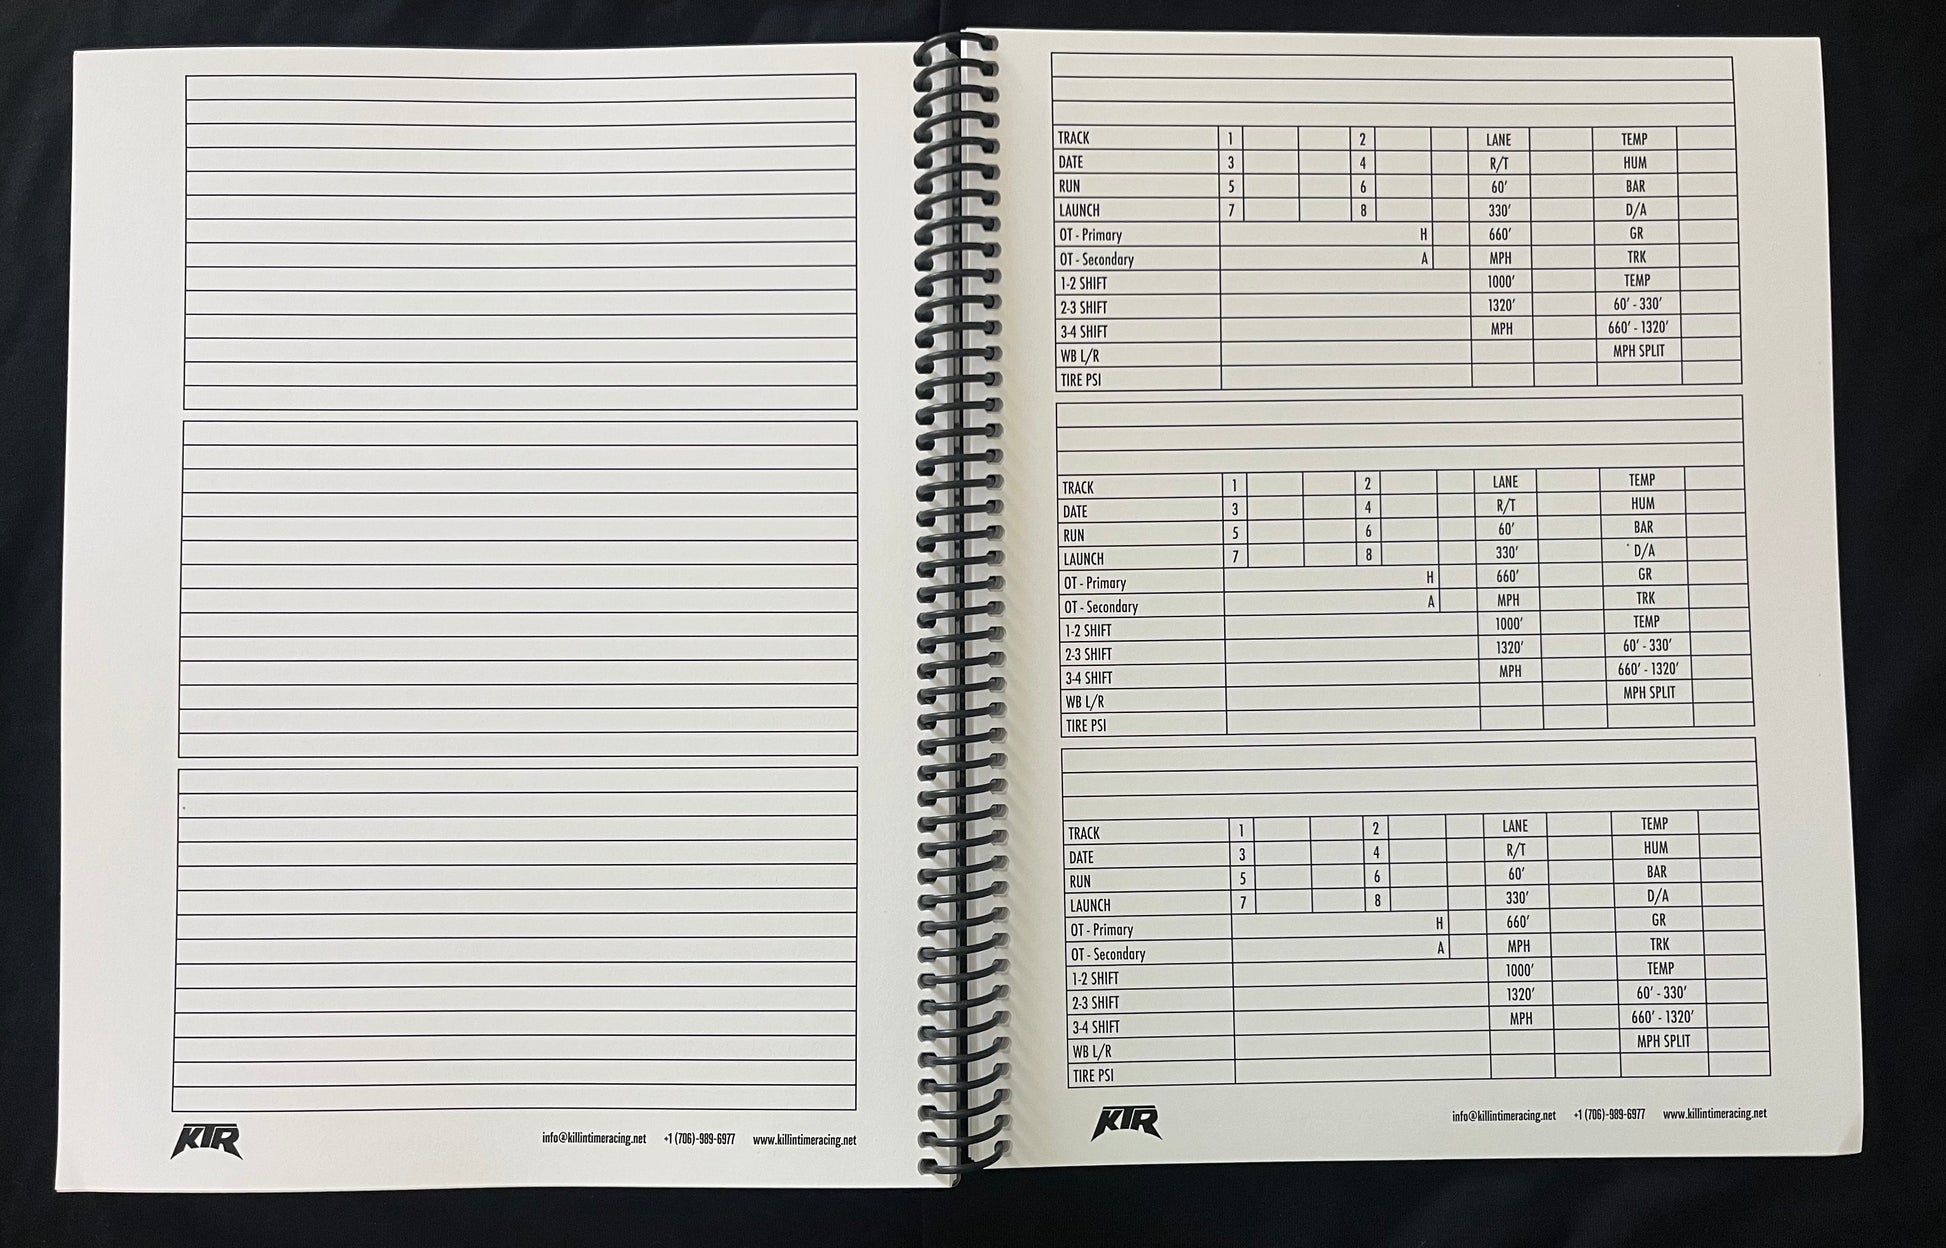 KTR
info@killintimeracing.net +1 (706)-989-6977 www.killintimeracing.net
TRACK 1 2 LANE TEMP
DATE 3 4 R/T HUM
RUN 5 6 60' BAR
LAUNCH 7 8 330' D/A
OT - Primary H 660' GR
OT - Secondary A MPH TRK
1-2 SHIFT 1000' TEMP
2-3 SHIFT 1320' 60' - 330'
3-4 SHIFT MPH 660' - 1320'
WB L/R MPH SPLIT
TIRE PSI
TRACK 1 2 LANE TEMP
DATE 3 4 R/T HUM
RUN 5 6 60' BAR
LAUNCH 7 8 330' D/A
OT - Primary H 660' GR
OT - Secondary A MPH TRK
1-2 SHIFT 1000' TEMP
2-3 SHIFT 1320' 60' - 330'
3-4 SHIFT MPH 660' - 1320'
WB L/R MPH SPLIT
TIRE PSI
TRACK 1 2 LANE TEMP
DATE 3 4 R/T HUM
RUN 5 6 60' BAR
LAUNCH 7 8 330' D/A
OT - Primary H 660' GR
OT - Secondary A MPH TRK
1-2 SHIFT 1000' TEMP
2-3 SHIFT 1320' 60' - 330'
3-4 SHIFT MPH 660' - 1320'
WB L/R MPH SPLIT
TIRE PSI
KTR
info@killintimeracing.net +1 (706)-989-6977 www.killintimeracing.net